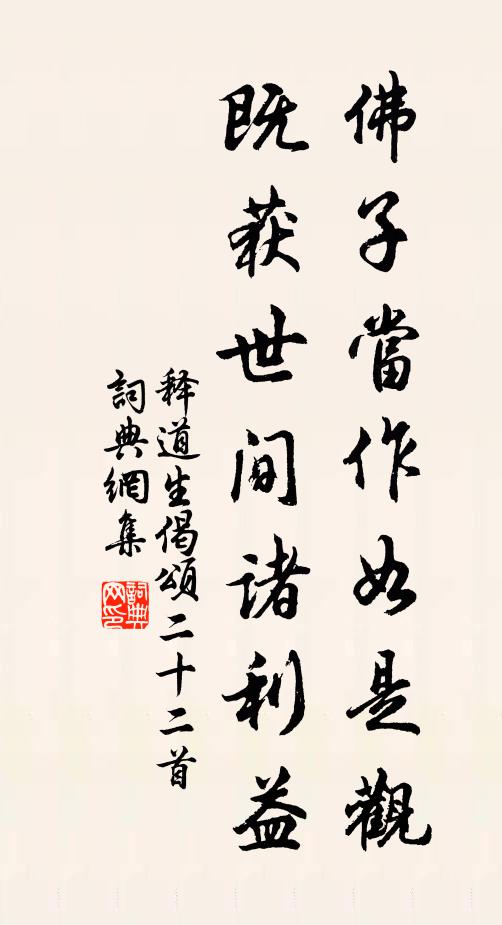 佛子當作如是觀
既获世间诸利益
释道生偈頌二十二首
詞典網集
詞典网印